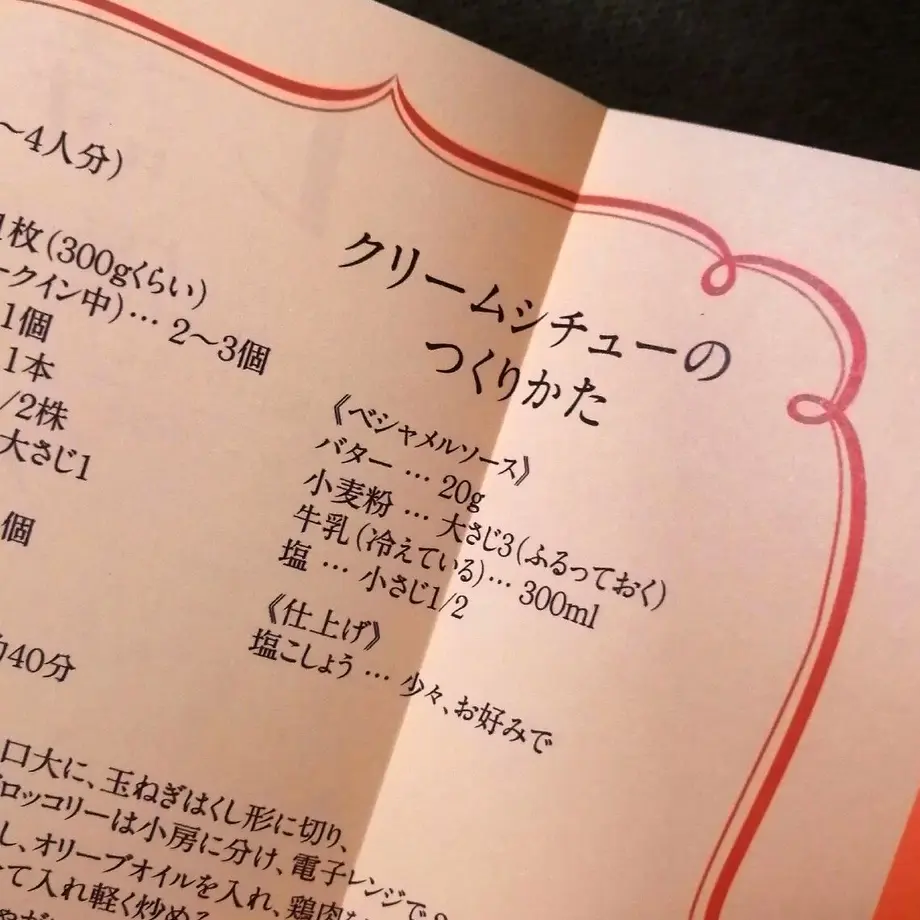 クリームシチューの
つくりかた
〜4人分)
1枚(300gくらい)
ークイン中)… 2〜3個
1個
1本
/2株
大さじ1
個
40分
《ベシャメルソース》
バター … 20g
小麦粉 … 大さじ3(ふるっておく)
牛乳(冷えている)… 300ml
塩 … 小さじ1/2
《仕上げ》
塩こしょう … 少々、お好みで
口大に、玉ねぎはくし形に切り、
ロッコリーは小房に分け、電子レンジで
し、オリーブオイルを入れ、鶏肉
て入れ軽く炒める